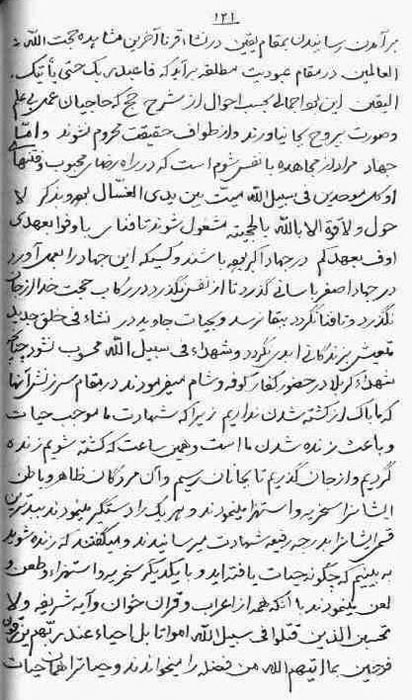 ۱۲۱
بر آمدن رسانیدن بمقام یقین در نشاء قرنا آخرین مشاهده حجت الله
العالمین در مقام عبودیت مطلقه برآید که فاعبد ربک حتی یأتیک
الیقین این بود اجمالی بحسب احوال از شرح حج که حاجیان عمل بی علم
وصورت بی روح بجا نیاورند و از طواف حقیقت محروم نشوند و امّا
جهاد مراد از مجاهده با نفس شوم است که در راه رضای محبوب
او کل موحدین فی سبیل الله میت بین یدی الغسّال بوده بذکر لا
حول ولا قوة الا بالله مشغول شوند تا فنای باوفوا بعهدی
اوف بعهدکم در جهاد اکبر باشند و کسیکه این جهاد را بعمل آورد
در جهاد اصغر باسانی گذرد تا از نفس نگذرد در رکاب حجت خدا از جان
نگذرد و تا فنا نگردد ببقا نرسد و بحیات جاوید در نشاء فی خلق جدید
متعیش بزندگانی ابدی نگردد و شهداء فی سبیل الله محسوب نشود چنانچه
شهداء کربلا در حضور کفار کوفه و شام میفرمودند در مقام سرزنش آنها
که ما باک از کشته شدن نداریم زیرا که شهادت ما موجب حیات
و باعث زنده شدن ما است و همین ساعت که کشته شویم زنده
گردیم و از جان گذریم تا بجانان رسیم و آن مردگان ظاهر و باطن
ایشانرا سخریه و استهزا مینمودند و هر یک را دستگیر مینمودند ببدترین
قسمی ایشانرا بدرجه رفیعه شهادت میرسانیدند و میگفتند که زنده شوید
به بینیم که چگونه حیات یافته‌اید و با یکدیگر سخریه و استهزاء و طعن و
لعن مینمودند با آنکه همه از اعراب و قرآن خوان و آیه شریفه ولا
تحسبن الذین قتلوا فی سبیل الله امواتا بل احیاء عند ربّهم یرزقون
فرحین بما آتیهم الله من فضله را میخواندند و حیات را همان حیات